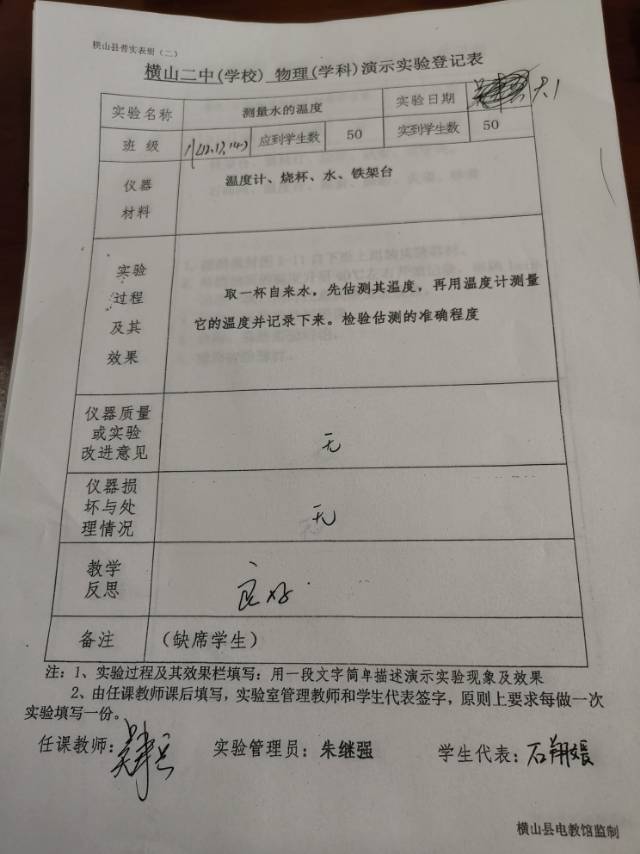 横山县普实表册（二）
横山二中(学校) 物理(学科)演示实验登记表
实验名称 测量水的温度 实验日期 9.1
班 级 应到学生数 50 实到学生数 50
仪器
材料
温度计、烧杯、水、铁架台
实验
过程
及其
效果
取一杯自来水，先估测其温度，再用温度计测量
它的温度并记录下来。检验估测的准确程度
仪器质量
或实验
改进意见
无
仪器损
坏与处
理情况
无
教学
反思
良好
备注 （缺席学生）
注：1、实验过程及其效果栏填写：用一段文字简单描述演示实验现象及效果
2、由任课教师课后填写，实验室管理教师和学生代表签字，原则上要求每做一次
实验填写一份。
任课教师： 实验管理员：朱继强 学生代表：石翔媛
横山县电教馆监制